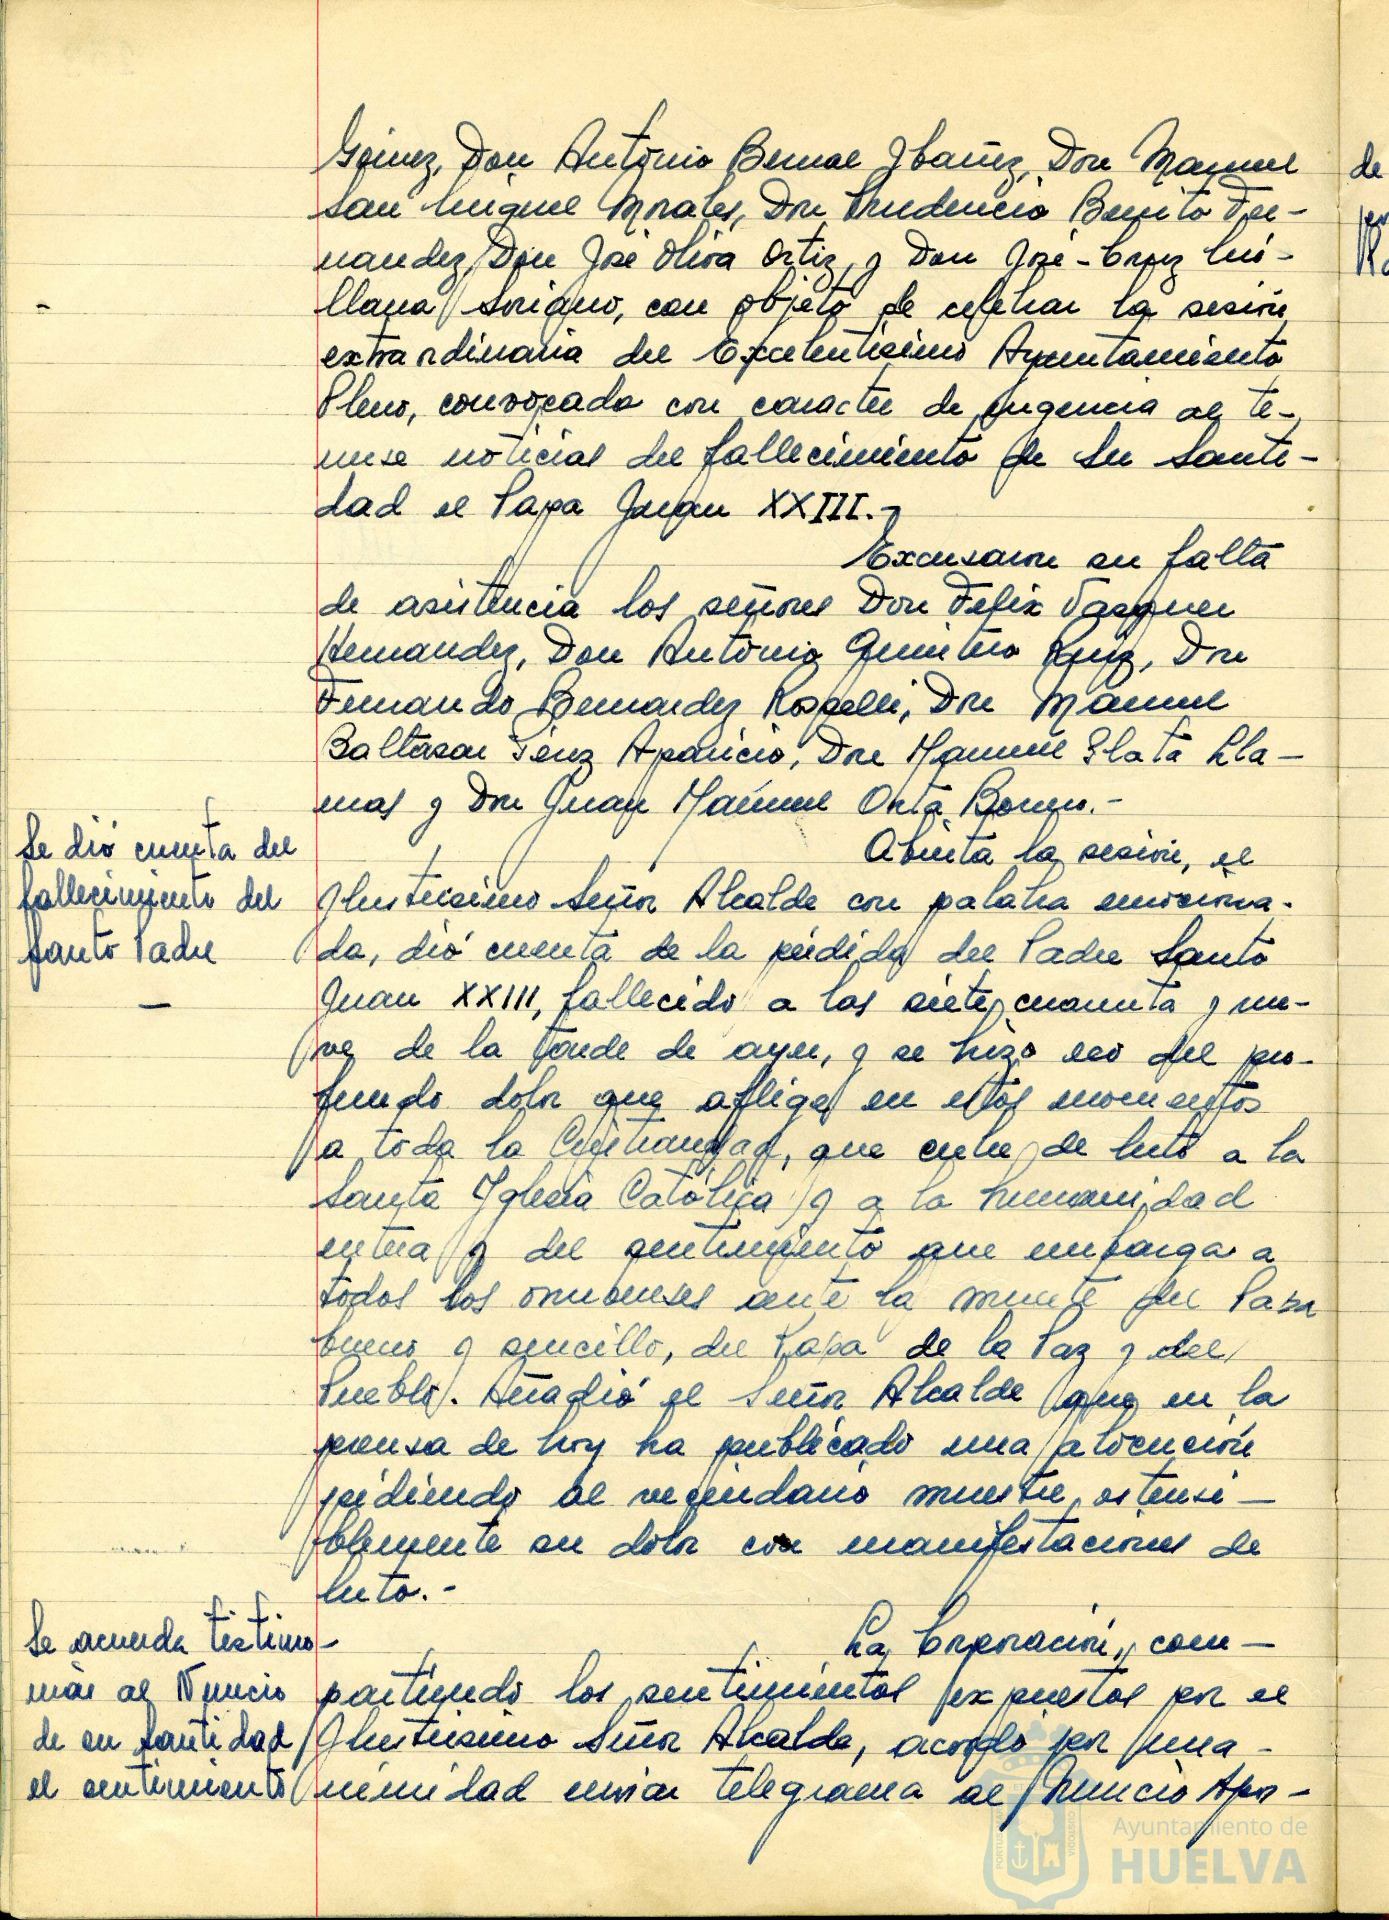 Gómez, Don Antonio Bernal Ibañez, Don Manuel
San Miguel Morales, Don Prudencio Benito Fer-
nandez, Don José Oliva Ortiz, y Don José-Cruz Qui-
llana Soriano, con objeto de celebrar la sesión
extraordinaria del Excelentísimo Ayuntamiento
Pleno, convocada con caracter de urgencia al te-
nerse noticias del fallecimiento de Su Santi-
dad el Papa Juan XXIII.-
Excusaron su falta
de asistencia los señores Don Felix Vazquez
Hernandez, Don Antonio Ruiz, Don
Fernando Bernardez, Don Manuel
Baltasar Pérez Aparicio, Don Manuel Plata Lla-
mas y Don Juan Manuel Orta Borrero.-
Se dió cuenta del
fallecimiento del
Santo Padre
Abierta la sesión, el
Ilustrisimo Señor Alcalde con palabra emociona-
da, dió cuenta de la pérdida del Padre Santo
Juan XXIII, fallecido a las siete, cuarenta y nue-
ve de la tarde de ayer, y se hizo eco del pro-
fundo dolor que aflige en estos momentos
a toda la Cristiandad, que cubre de luto a la
Santa Iglesia Católica y a la humanidad
entera y del sentimiento que embarga a
todos los onubenses ante la muerte del Papa
bueno y sencillo, del Papa de la Paz y del
Pueblo. Añadió el Señor Alcalde que en la
prensa de hoy ha publicado una alocución
pidiendo al vecindario muestre ostensi-
blemente su dolor con manifestaciones de
luto.-
Se acuerda testimo-
niar al Nuncio
de su Santidad
el sentimiento
La Corporación, com-
partiendo los sentimientos expuestos por el
Ilustrisimo Señor Alcalde, acordó por una-
nimidad enviar telegrama al Nuncio Apos-
de
Ayuntamiento de
HUELVA